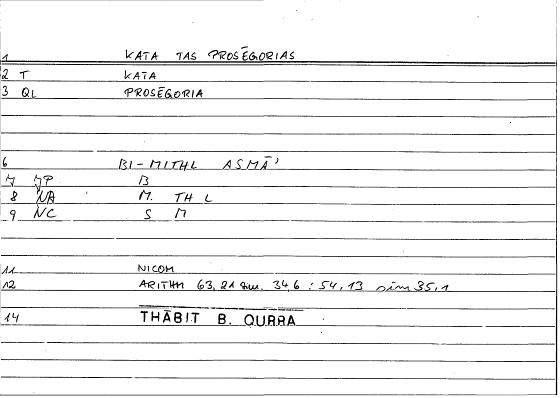 1 KATA TAS PROSĒGORIAS
2 T KATA
3 QL PROSĒGORIA
6 BI-MITHL ASMĀ'
7 JP B
8 NA M. TH L
9 NC S M
11 NICOM
12 ARITHM 63,21 sim. 34,6 : 54,13 sim 35,1
14 THĀBIT B. QURRA